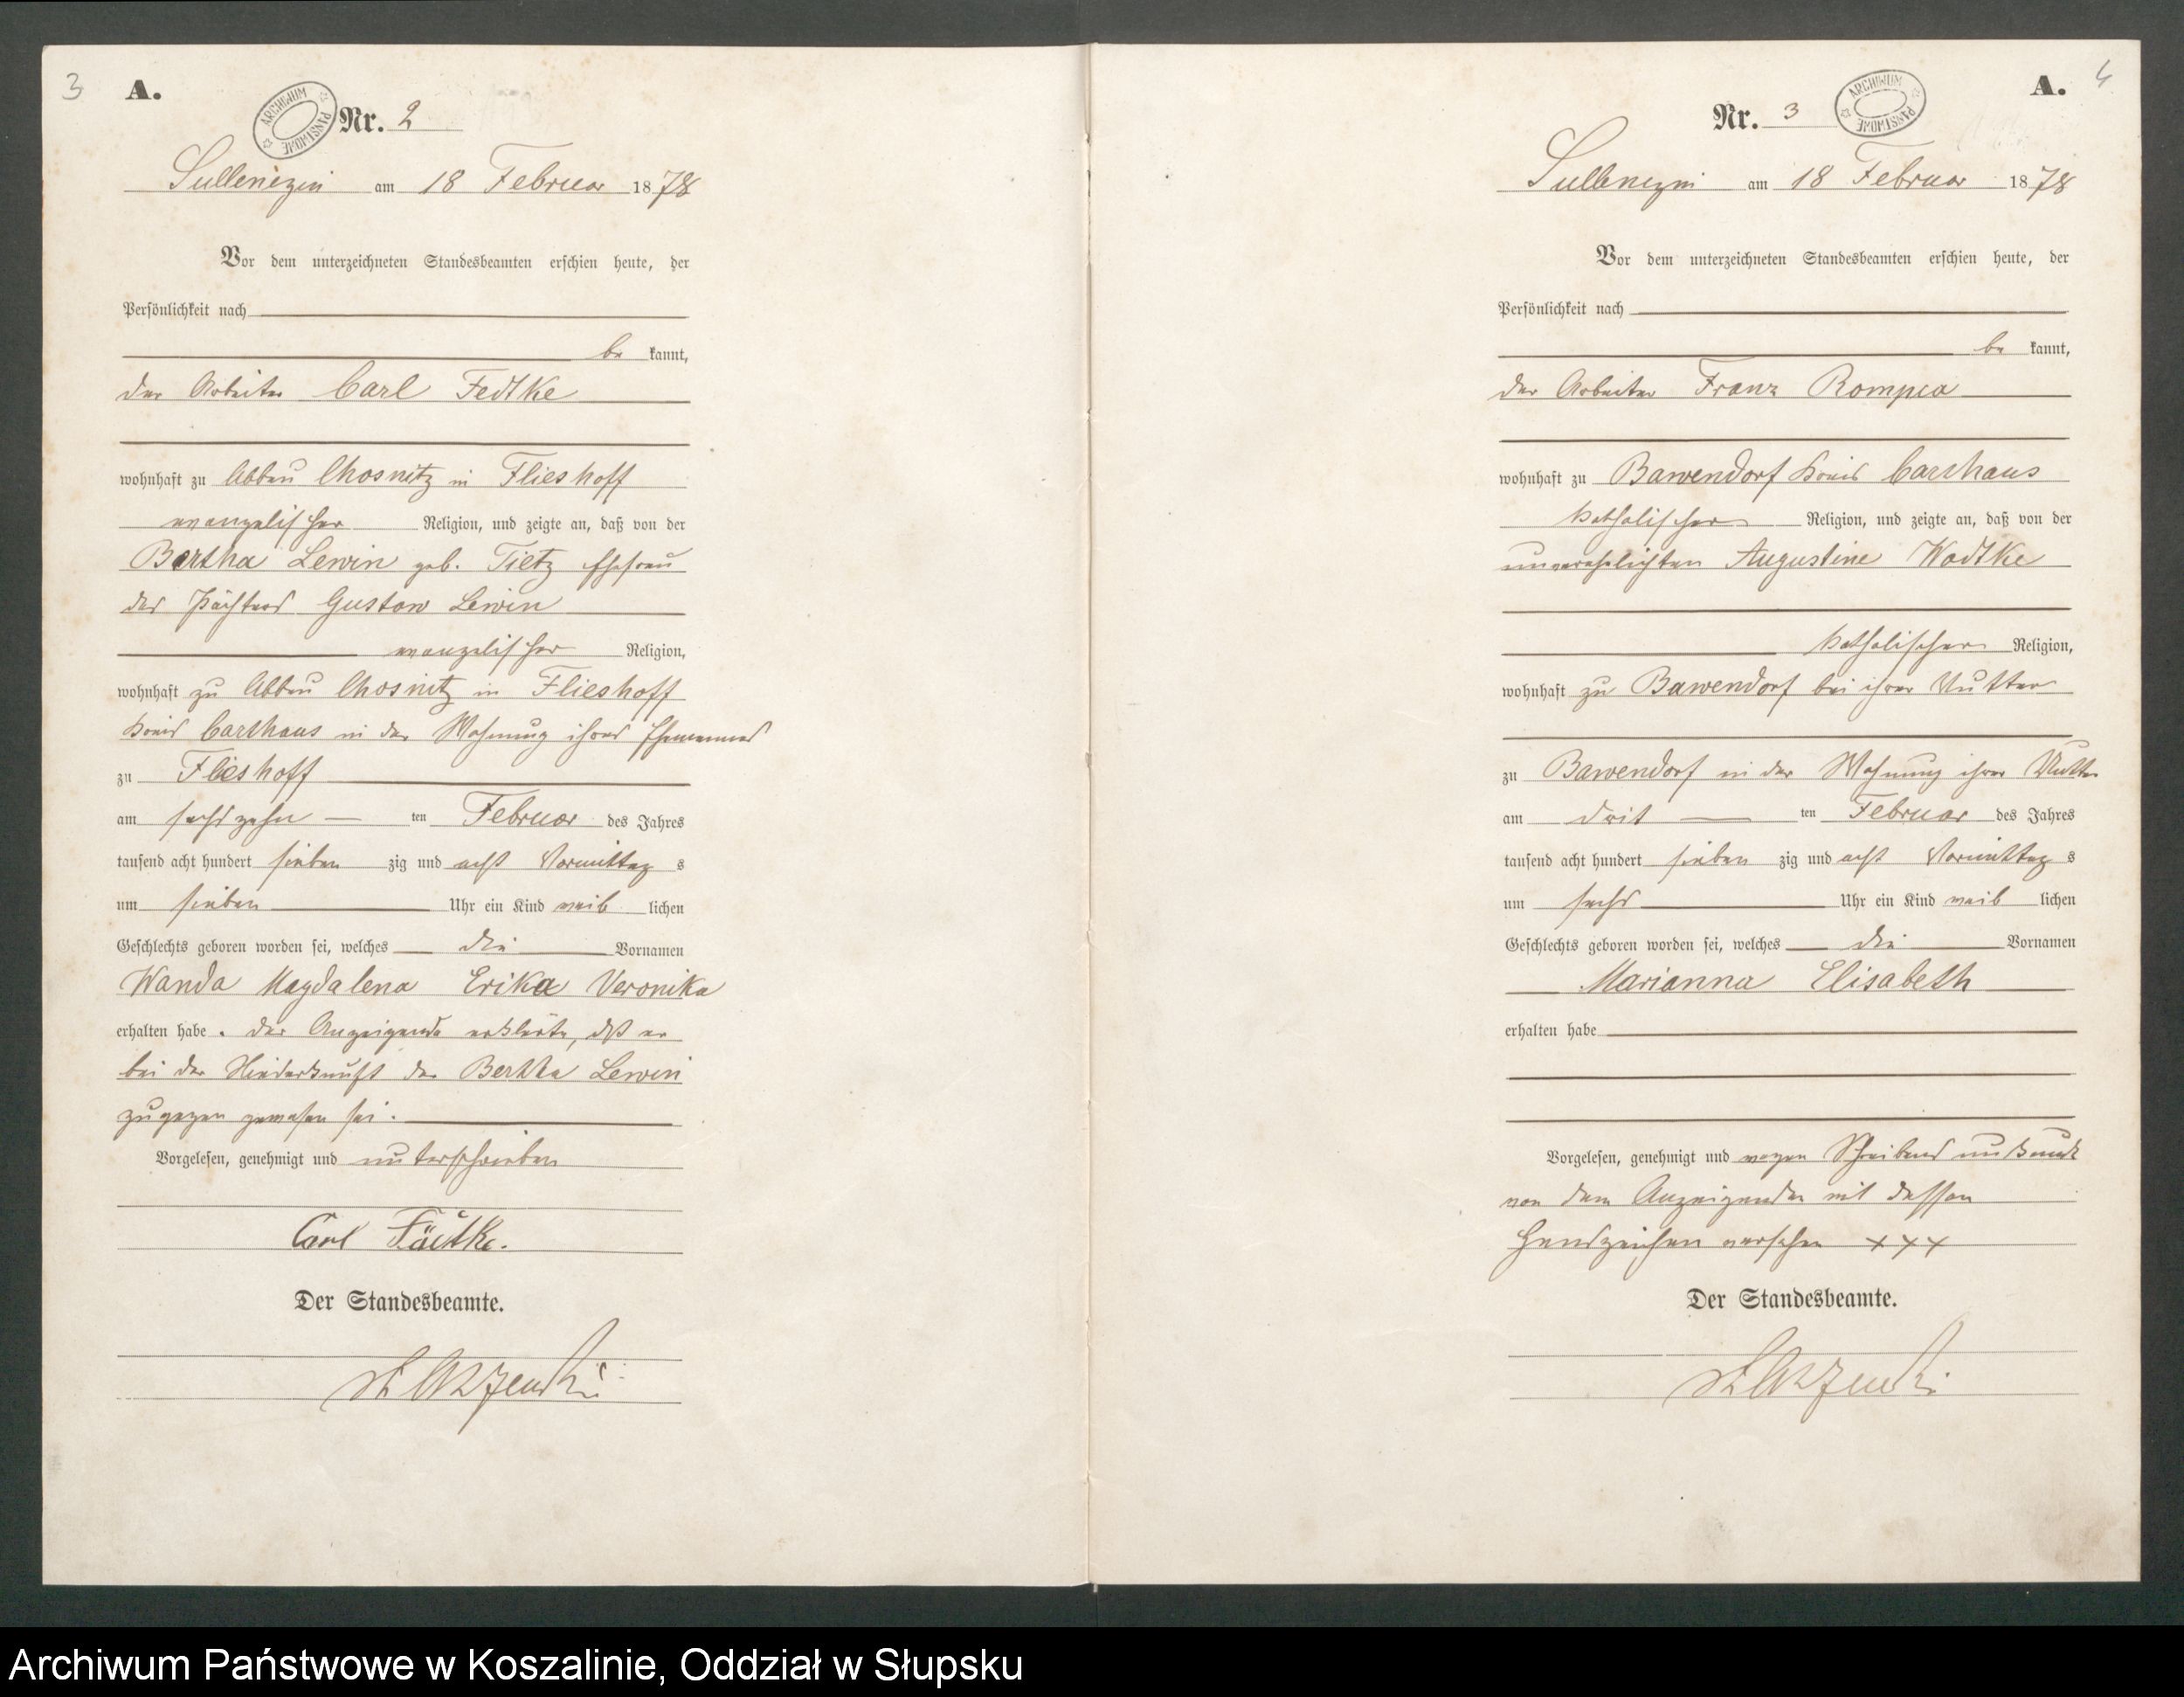 3 A.
ARCHIWUM PAŃSTWOWE
Nr. 2
Sullenczyn am 18 Februar 1878
Vor dem unterzeichneten Standesbeamten erschien heute, der
Persönlichkeit nach
be kannt,
der Arbeiter Carl Fedtke
wohnhaft zu Abbau Chosnitz in Flieshoff
evangelischer Religion, und zeigte an, daß von der
Bertha Lewin geb. Tietz Ehefrau
des Pächters Gustav Lewin
evangelischer Religion,
wohnhaft zu Abbau Chosnitz in Flieshoff
Kreis Carthaus in der Wohnung ihres Ehemannes
zu Flieshoff
am sechszehn ten Februar des Jahres
tausend acht hundert sieben zig und acht Vormittag s
um sieben Uhr ein Kind weib lichen
Geschlechts geboren worden sei, welches die Vornamen
Wanda Magdalena Erika Veronika
erhalten habe. der Anzeigende erklärte, daß er
bei der Niederkunft der Bertha Lewin
zugegen gewesen sei.
Vorgelesen, genehmigt und unterschrieben
Carl Fädtke.
Der Standesbeamte.
A. 4
Nr. 3
ARCHIWUM PAŃSTWOWE
Sullenczyn am 18 Februar 1878
Vor dem unterzeichneten Standesbeamten erschien heute, der
Persönlichkeit nach
be kannt,
der Arbeiter Franz Rompca
wohnhaft zu Bawendorf Kreis Carthaus
katholischer Religion, und zeigte an, daß von der
unverehelichten Augustine Wodtke
katholischer Religion,
wohnhaft zu Bawendorf bei ihrer Mutter
zu Bawendorf in der Wohnung ihrer Mutter
am drit ten Februar des Jahres
tausend acht hundert sieben zig und acht Vormittag s
um sechs Uhr ein Kind weib lichen
Geschlechts geboren worden sei, welches die Vornamen
Marianna Elisabeth
erhalten habe
Vorgelesen, genehmigt und wegen Schreibens unkunde
von dem Anzeigenden mit dessen
Handzeichen versehen +++
Der Standesbeamte.
Archiwum Państwowe w Koszalinie, Oddział w Słupsku